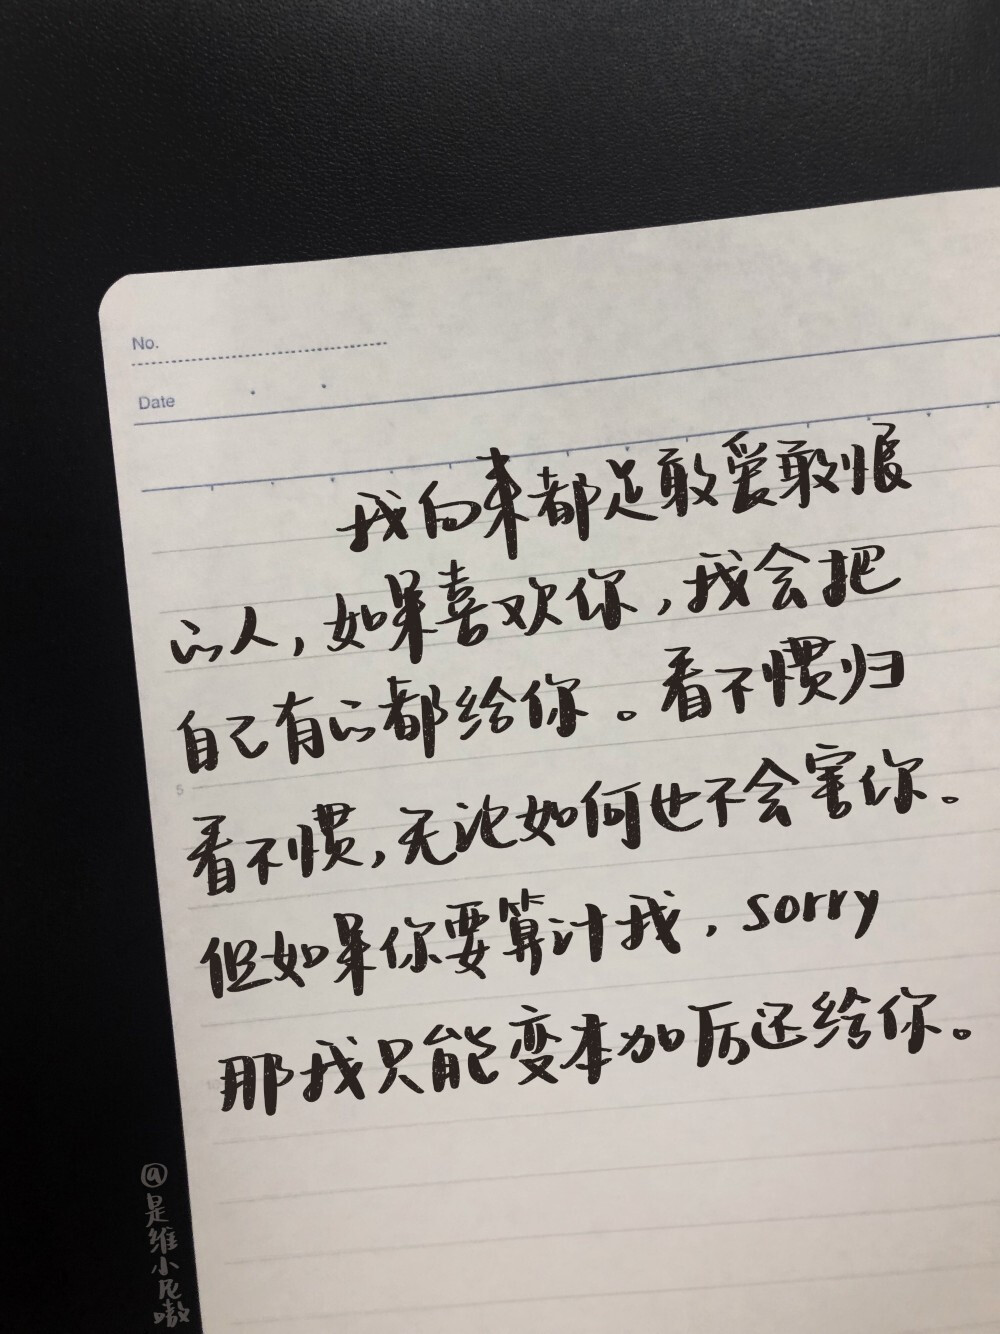 No.
Date
我向来都是敢爱敢恨
的人，如果喜欢你，我会把
自己有的都给你。看不惯归
5
看不惯，无论如何也不会害你。
但如果你要算计我，sorry
那我只能变本加厉还给你。
@是维小尼嗷